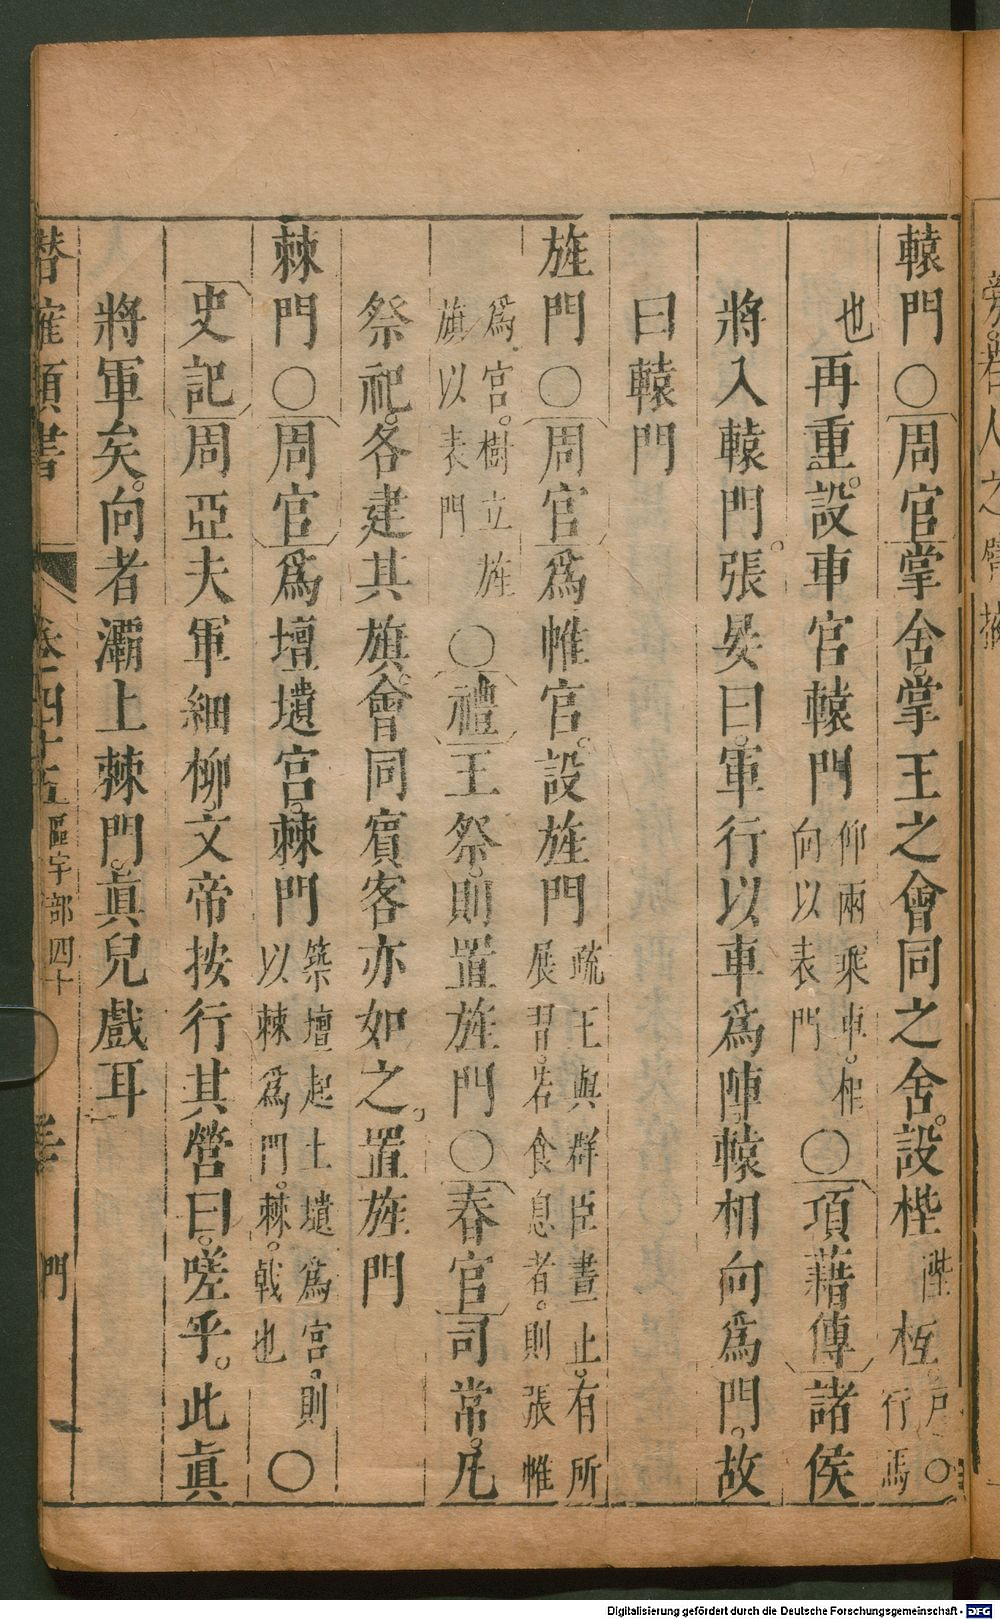 轅門○周官掌舍掌王之會同之舍設梐陛枑戶○行馬
也再重設車官轅門仰兩乘車相向以表門○項藉傳諸侯
將入轅門張晏曰軍行以車爲陣轅相向爲門故
曰轅門
旌門○周官爲帷官設旌門疏王與群臣晝止有所展習若食息者則張帷
爲宮樹立旌旗以表門○禮王祭則置旌門○春官司常凡
祭祀各建其旗會同賓客亦如之置旌門
棘門○周官爲壇壝宮棘門築壇起土壝爲宮則以棘爲門棘戟也○
史記周亞夫軍細柳文帝按行其營曰嗟乎此眞
將軍矣向者灞上棘門眞兒戲耳
潛確類書 卷之四十五 區宇部四十 門
Digitalisierung gefördert durch die Deutsche Forschungsgemeinschaft - DFG